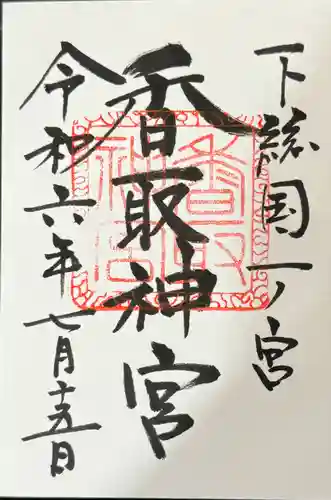 下総国一ノ宮
香取神宮
令和六年七月十五日
香取
神宮